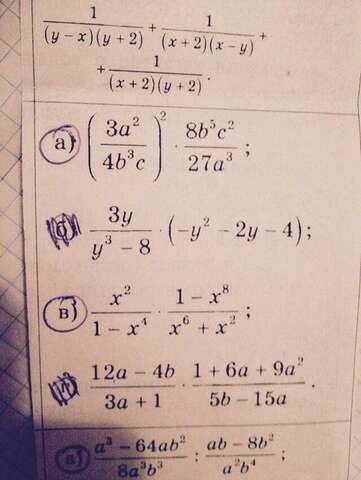 \frac{1}{(y-x)(y+2)} + \frac{1}{(x+2)(x-y)} +
+ \frac{1}{(x+2)(y+2)}.
а) \left(\frac{3a^2}{4b^3c}\right)^2 \cdot \frac{8b^5c^2}{27a^3};
б) \frac{3y}{y^3-8} \cdot (-y^2-2y-4);
в) \frac{x^2}{1-x^4} \cdot \frac{1-x^8}{x^6+x^2};
\frac{12a-4b}{3a+1} \cdot \frac{1+6a+9a^2}{5b-15a}.
а) \frac{a^3-64ab^2}{8a^3b^3} : \frac{ab-8b^2}{a^2b^4};